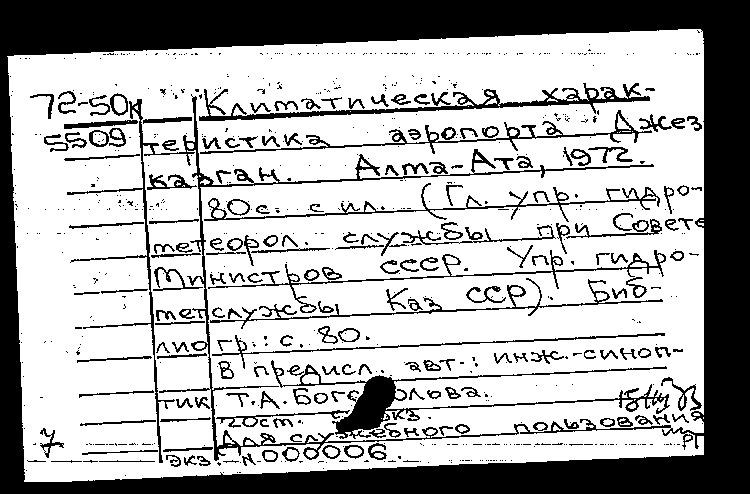 72-50к Климатическая харак-
5509 теристика аэропорта Джез
казган. Алма-Ата, 1972.
80с. с ил. (Гл. упр. гидро-
метеорол. службы при Совете
Министров СССР. Упр. гидро-
метслужбы Каз ССР). Биб-
лиогр.: с. 80.
В предисл. авт.: инж.-синоп-
тик Т.А.
720ст. экз.
Для служебного пользования
7 экз. N 000006.